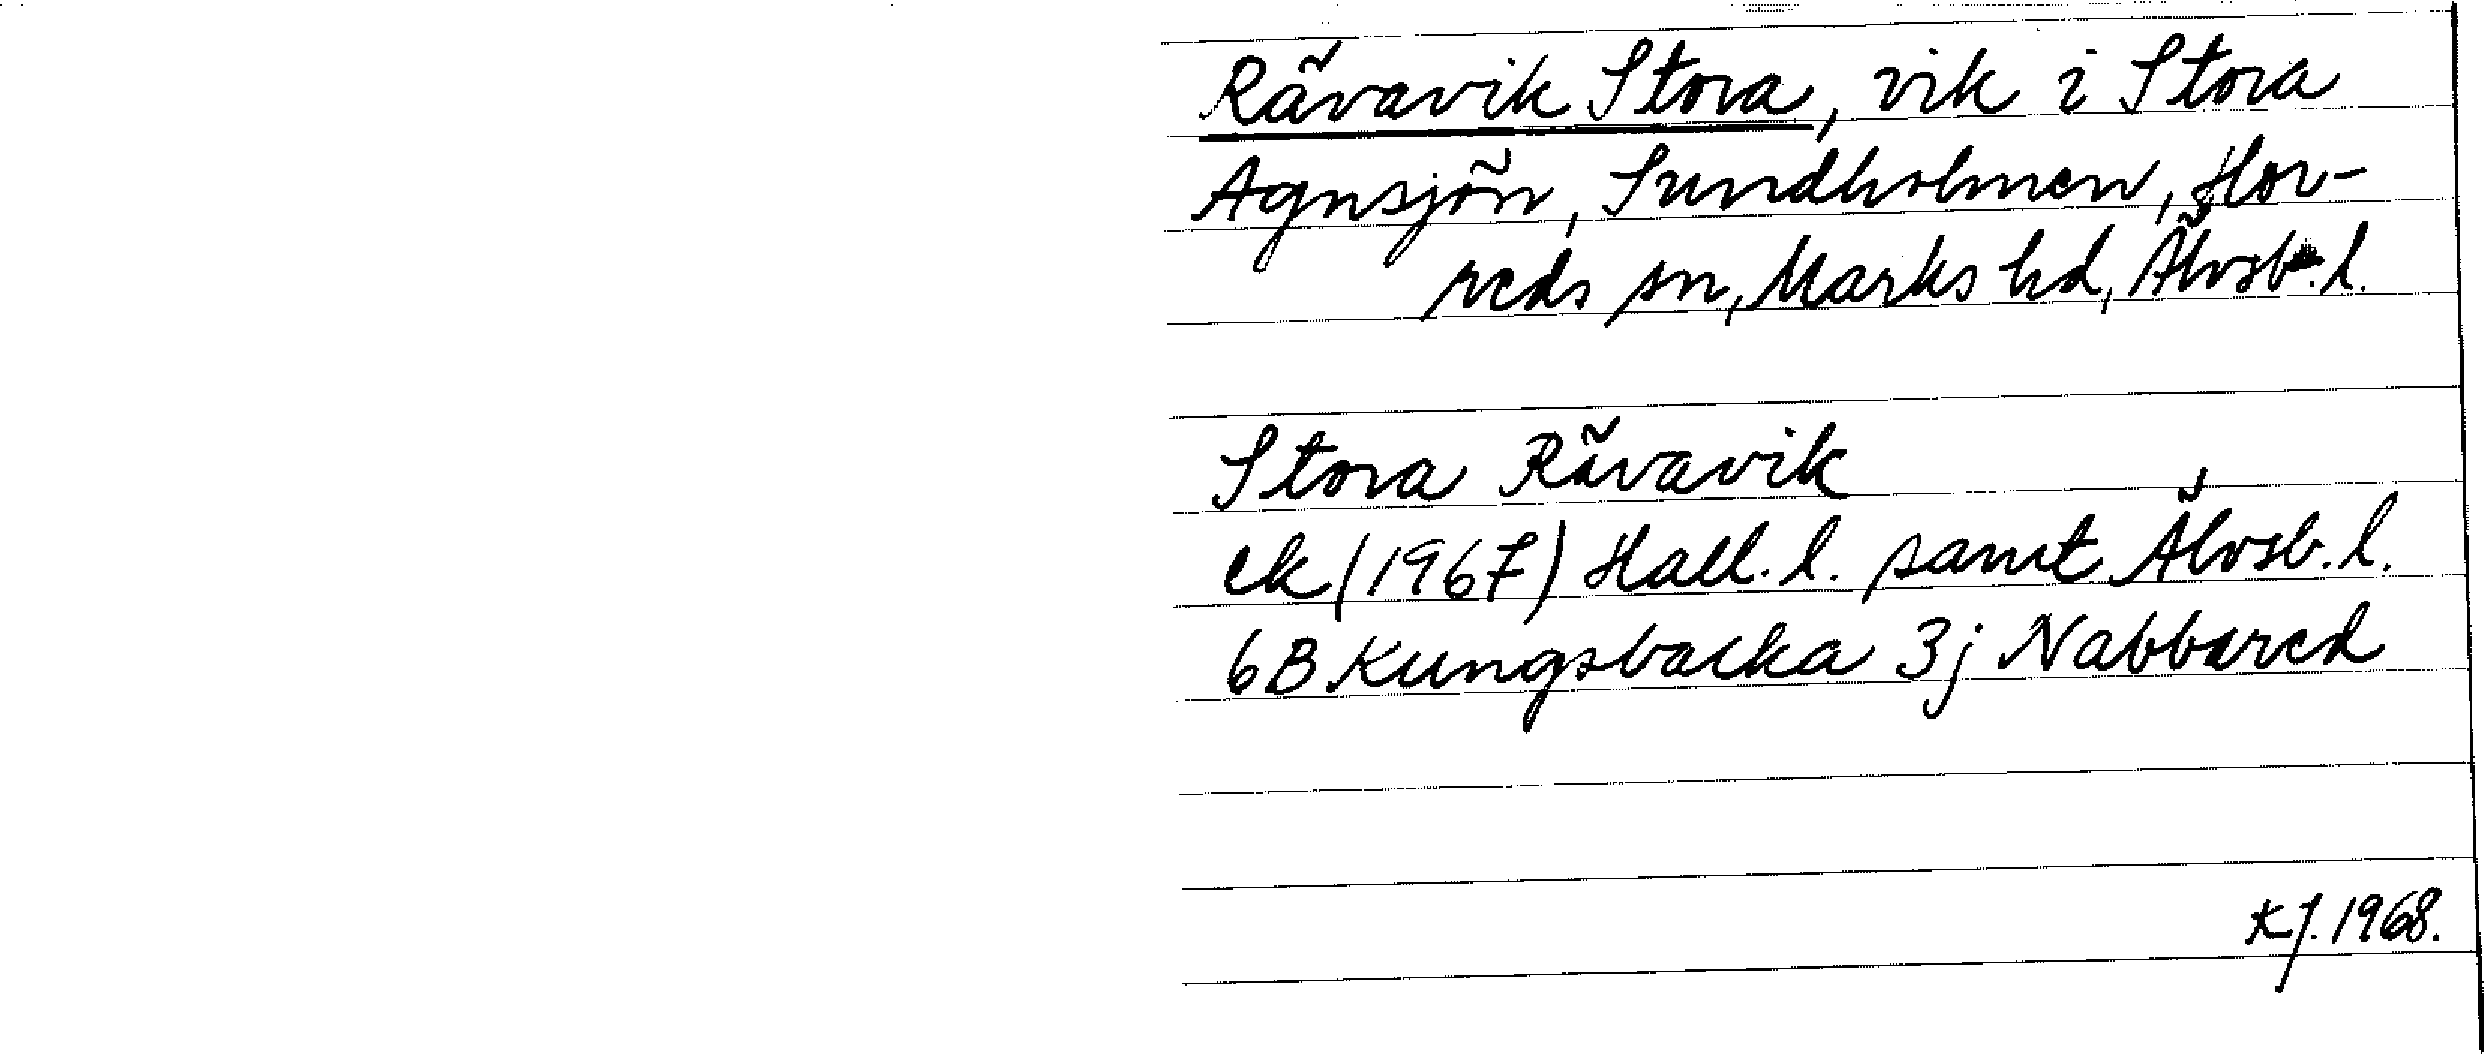 Rävavik Stora, vik i Stora
Agnsjön, Sundholmen, Hor-
reds sn, Marks hd, Älvsb. l.
Stora Rävavik
ek (1967) Hall. l. samt Älvsb. l.
6B Kungsbacka 3j Nabbared
KJ. 1968.